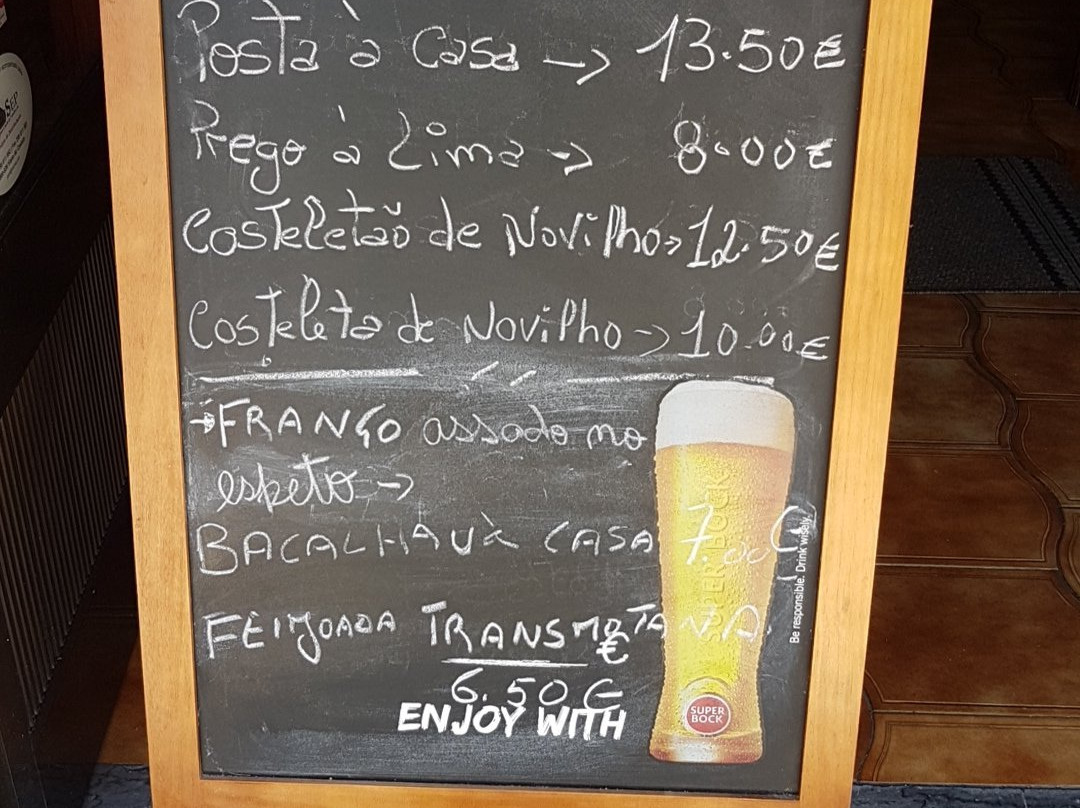 Posta à Casa → 13.50€
Prego à Lima → 8.00€
Costeletão de Novilho → 12.50€
Costeleta de Novilho → 10.00€
→ FRANGO assado no
espeto →
BACALHAU À CASA 7.00€
FEIJOADA TRANSMOTANA.
€
6.50€
ENJOY WITH
SUPER BOCK
SUPER
BOCK
Be responsible. Drink wisely.